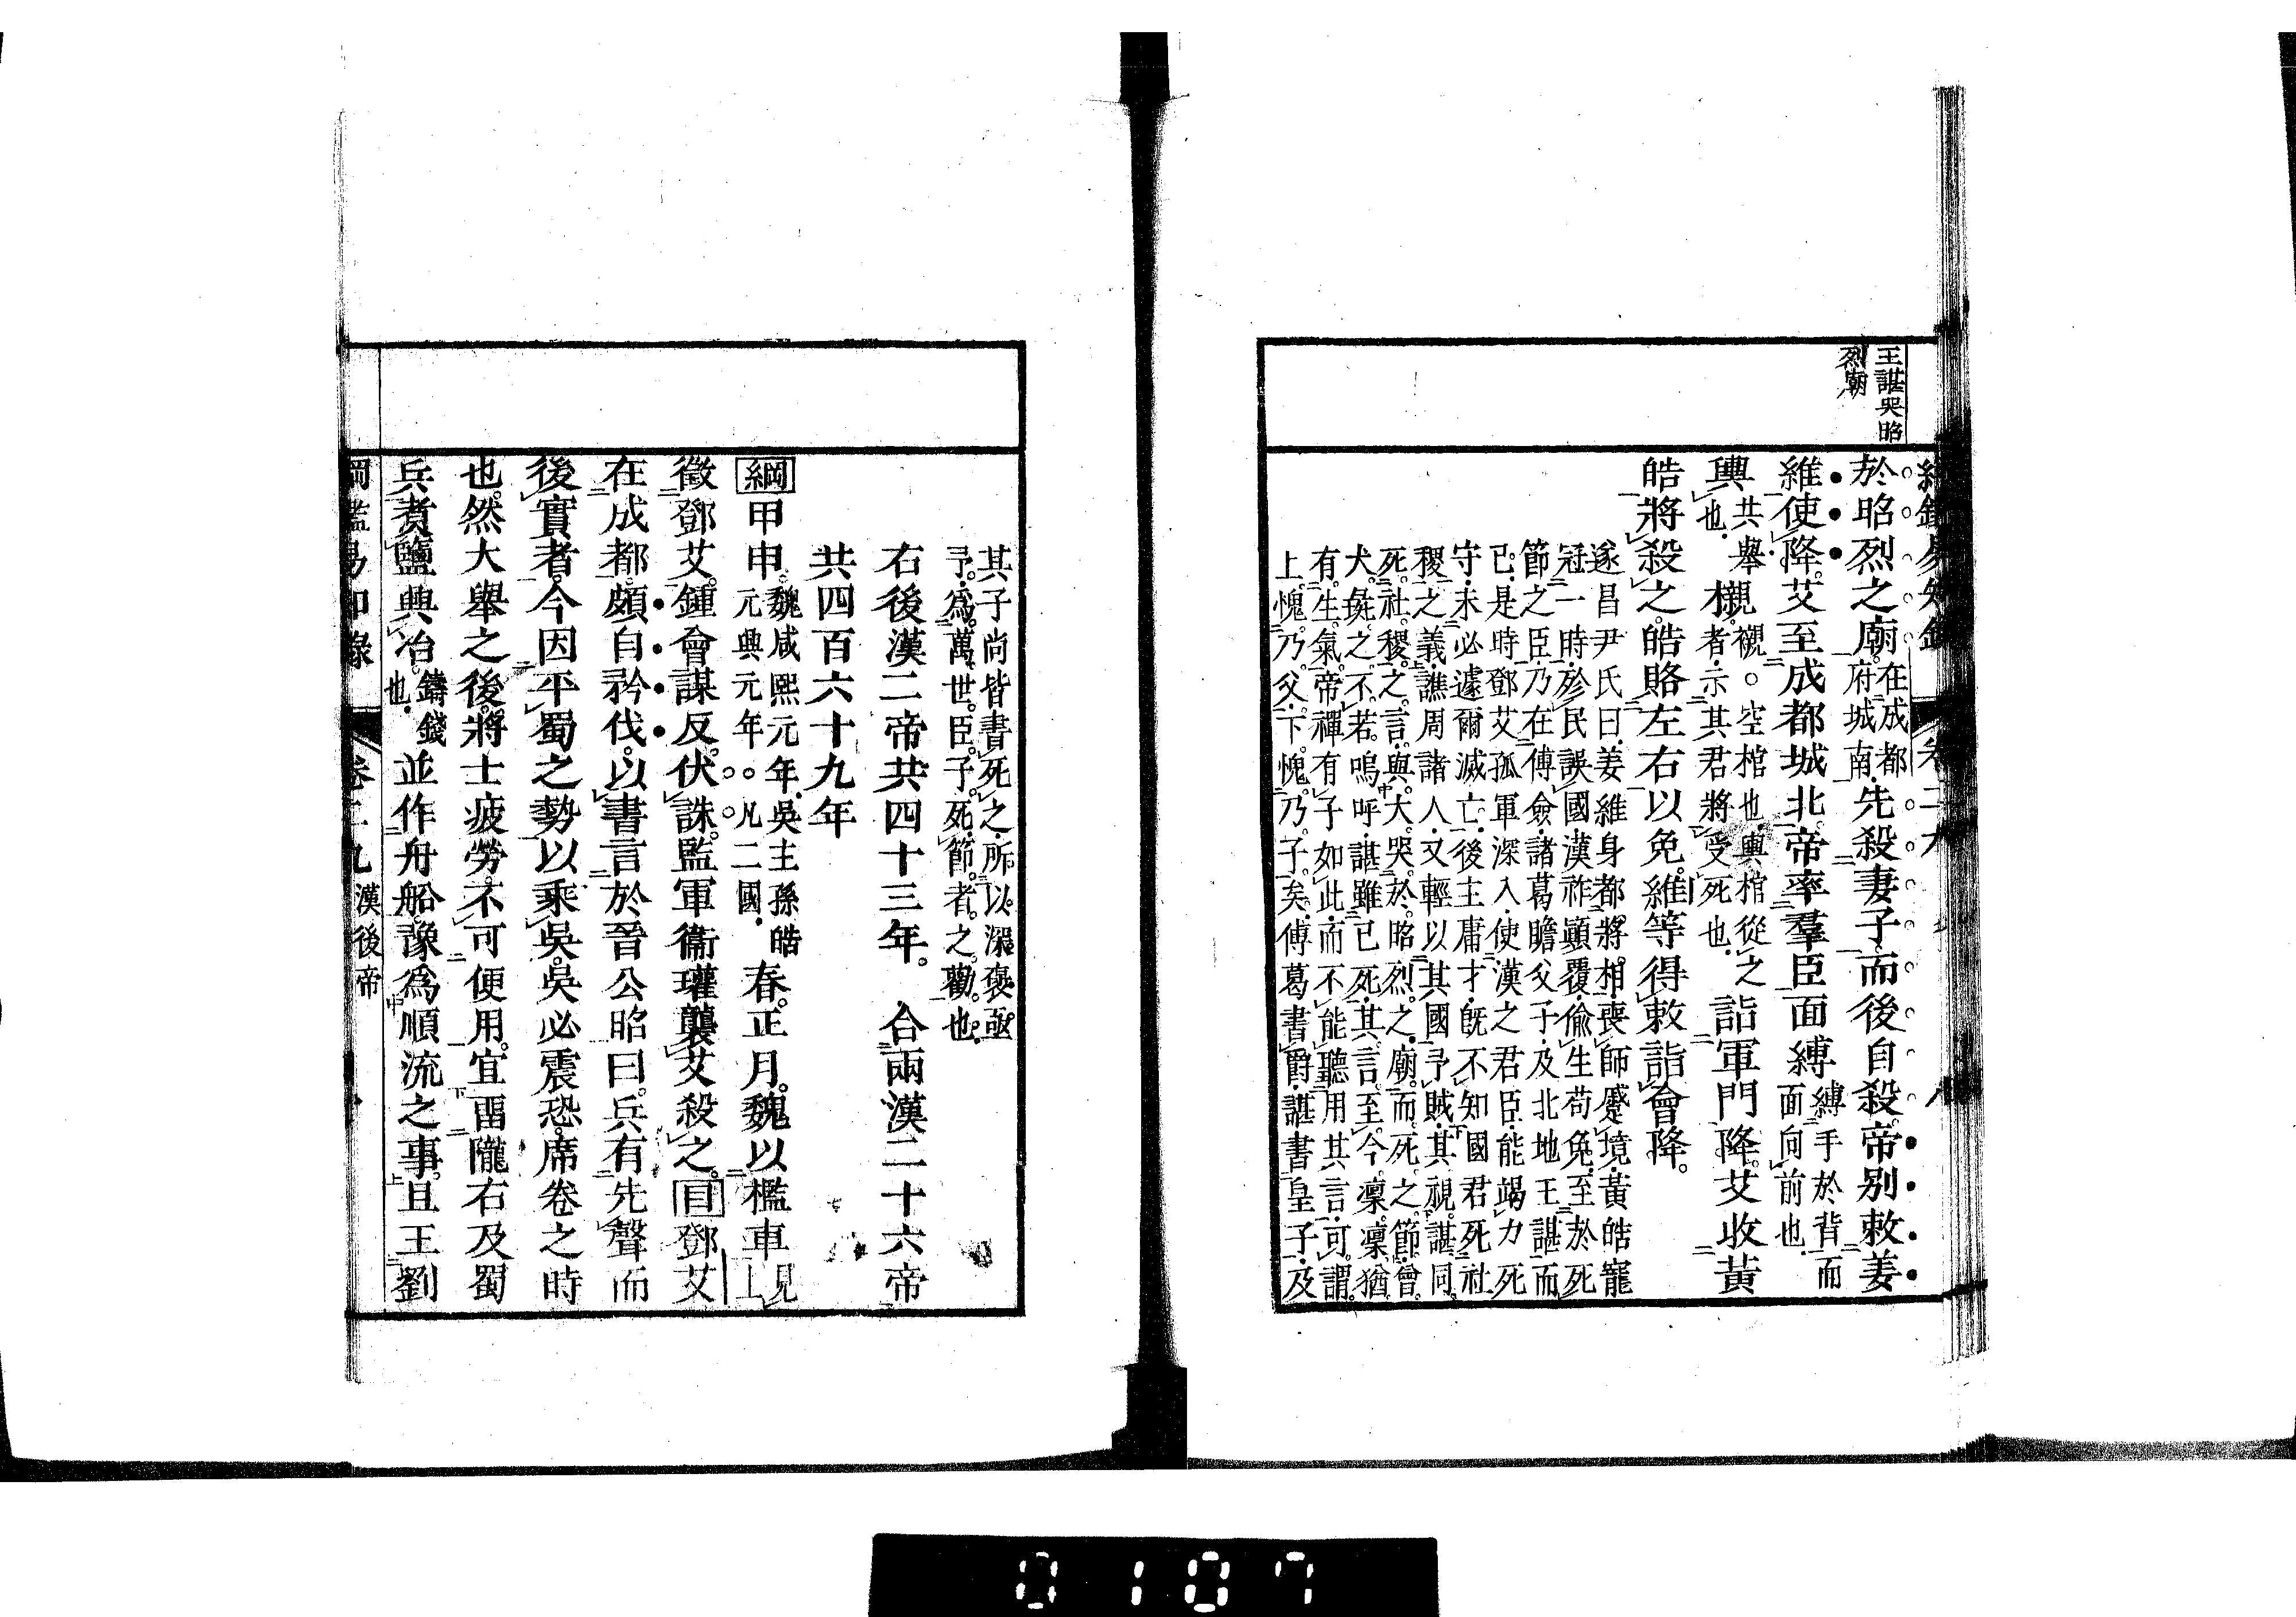 王諶哭昭
烈廟
於昭烈之廟。在成都府城南。先殺妻子。而後自殺。帝別敕姜
維使降。艾至成都城北。帝率羣臣面縛縛手於背而面向前也。
輿共舉也。櫬櫬。空棺也。輿棺從之者。示其君將受死也。詣軍門降。艾收黃
皓。將殺之。皓賂左右以免。維等得敕詣會降。
遂昌尹氏曰。姜維身都將相。喪師蹙境。黃皓寵
冠一時。殄民誤國。漢祚顚覆。偸生苟免。至於死
節之臣。乃在傅僉。諸葛瞻父子。及北地王諶而
已。是時鄧艾孤軍深入。使漢之君臣。能竭力死
守。未必遽爾滅亡。後主庸才。旣不知國君死社
稷之義。譙周諸人。又輕以其國予賊。其視諶同
死社稷之言。與大哭於昭烈之廟。而死之節。曾
犬彘之不若。嗚呼。諶雖已死。其言至今凜凜猶
有生氣。帝禪有子如此。而不能聽用其言。可謂
上愧乃父。下愧乃子矣。傅葛書爵。諶書皇子。及
其子尚皆書死之。所以深褒亟
予。爲萬世臣子。死節者之勸也。
右後漢二帝共四十三年。 合兩漢二十六帝
共四百六十九年
綱甲申。魏咸熙元年。吳主孫皓元興元年。○凡二國。春。正月。魏以檻車見上
徵鄧艾。鍾會謀反。伏誅。監軍衞瓘襲艾殺之。目鄧艾
在成都。頗自矜伐。以書言於晉公昭曰。兵有先聲而
後實者。今因平蜀之勢以乘吳。吳必震恐。席卷之時
也。然大舉之後。將士疲勞。不可便用。宜畱隴右及蜀
兵。煮鹽興冶。鑄錢也。並作舟船。豫爲順流之事。且王劉
綱鑑易知錄 卷二九 漢後帝